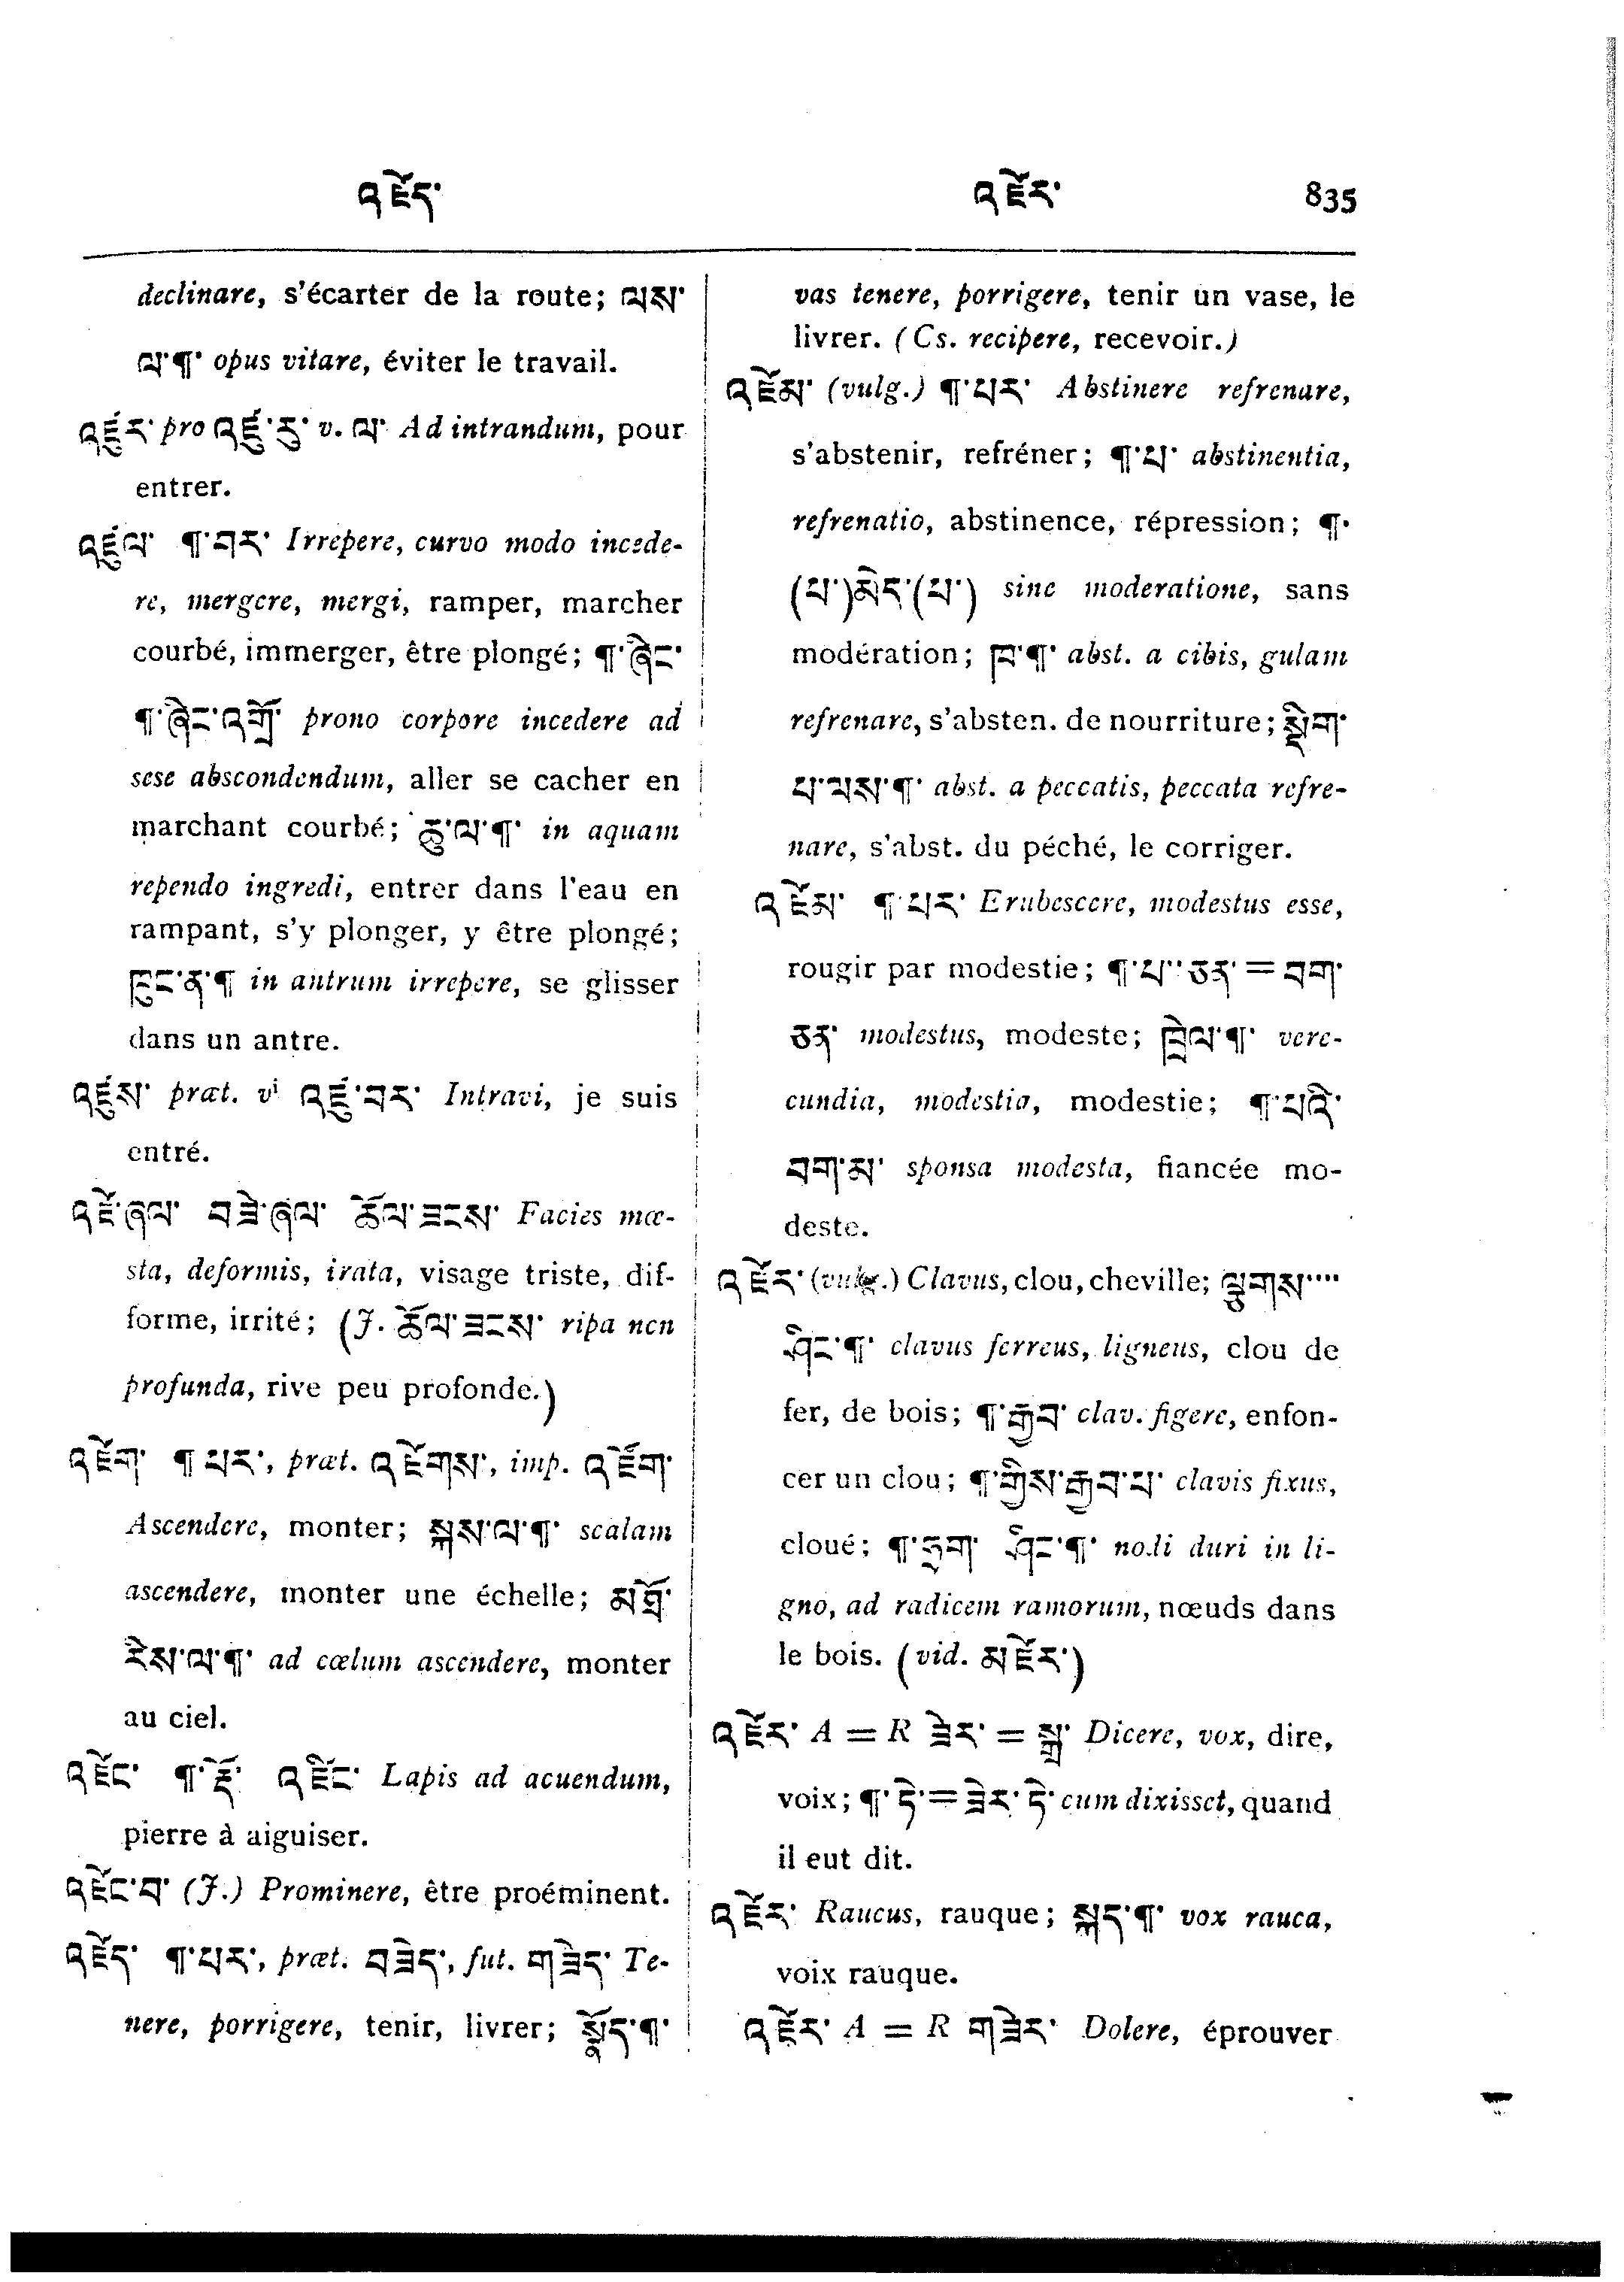 འཛོད་
འཛོར་ 835
declinare, s'écarter de la route; ལས་
ལ་¶་ opus vitare, éviter le travail.
འཛུར་ pro འཛུ་རུ་ v. ལ་ Ad intrandum, pour
entrer.
འཛུལ་ ¶་བར་ Irrepere, curvo modo incede-
re, mergere, mergi, ramper, marcher
courbé, immerger, être plongé; ¶་ཞིང་
¶་ཞིང་འགྲོ་ prono corpore incedere ad
sese abscondendum, aller se cacher en
marchant courbé; ཆུ་ལ་¶་ in aquam
rependo ingredi, entrer dans l'eau en
rampant, s'y plonger, y être plongé;
ཁུང་ན་¶ in antrum irrepere, se glisser
dans un antre.
འཛུས་ præt. vi འཛུ་བར་ Intravi, je suis
entré.
འཛོ་ཞལ་ བཟེ་ཞལ་ ཚོལ་ཟངས་ Facies mœ-
sta, deformis, irata, visage triste, dif-
forme, irrité; (J. ཚོལ་ཟངས་ ripa non
profunda, rive peu profonde.)
འཛོག་ ¶ པར་, præt. འཛོགས་, imp. འཛོག་
Ascendere, monter; སྐས་ལ་¶་ scalam
ascendere, monter une échelle; མཐོ་
རིས་ལ་¶་ ad cœlum ascendere, monter
au ciel.
འཛོང་ ¶་རྡོ་ འཛིང་ Lapis ad acuendum,
pierre à aiguiser.
འཛོང་བ་ (J.) Prominere, être proéminent.
འཛོད་ ¶་པར་, præt. བཟེད་, fut. གཟེད་ Te-
nere, porrigere, tenir, livrer; སྣོད་¶་
vas tenere, porrigere, tenir un vase, le
livrer. (Cs. recipere, recevoir.)
འཛོམ་ (vulg.) ¶་པར་ Abstinere refrenare,
s'abstenir, refréner; ¶་པ་ abstinentia,
refrenatio, abstinence, répression; ¶་
(པ་)མེད་(པ་) sine moderatione, sans
modération; ཁ་¶་ abst. a cibis, gulam
refrenare, s'absten. de nourriture; སྡིག་
པ་ལས་¶་ abst. a peccatis, peccata refre-
nare, s'abst. du péché, le corriger.
འཛོམ་ ¶་པར་ Erubescere, modestus esse,
rougir par modestie; ¶་པ་་ཅན་ = བག་
ཅན་ modestus, modeste; ཁྲེལ་¶་ vere-
cundia, modestia, modestie; ¶་པའི་
བག་མ་ sponsa modesta, fiancée mo-
deste.
འཛོར་ (vulg.) Clavus, clou, cheville; ལྕགས་་་་
ཤིང་¶་ clavus ferreus, ligneus, clou de
fer, de bois; ¶་རྒྱབ་ clav. figere, enfon-
cer un clou; ¶་གྱིས་རྒྱབ་པ་ clavis fixus,
cloué; ¶་ཧྲག་ ཤིང་¶་ nodi duri in li-
gno, ad radicem ramorum, nœuds dans
le bois. (vid. མཛོར་)
འཛོར་ A = R ཟེར་ = སྒྲ་ Dicere, vox, dire,
voix; ¶་ཏེ་=ཟེར་ཏེ་ cum dixisset, quand
il eut dit.
འཛོར་ Raucus, rauque; སྐད་¶་ vox rauca,
voix rauque.
འཛོར་ A = R གཟེར་ Dolere, éprouver